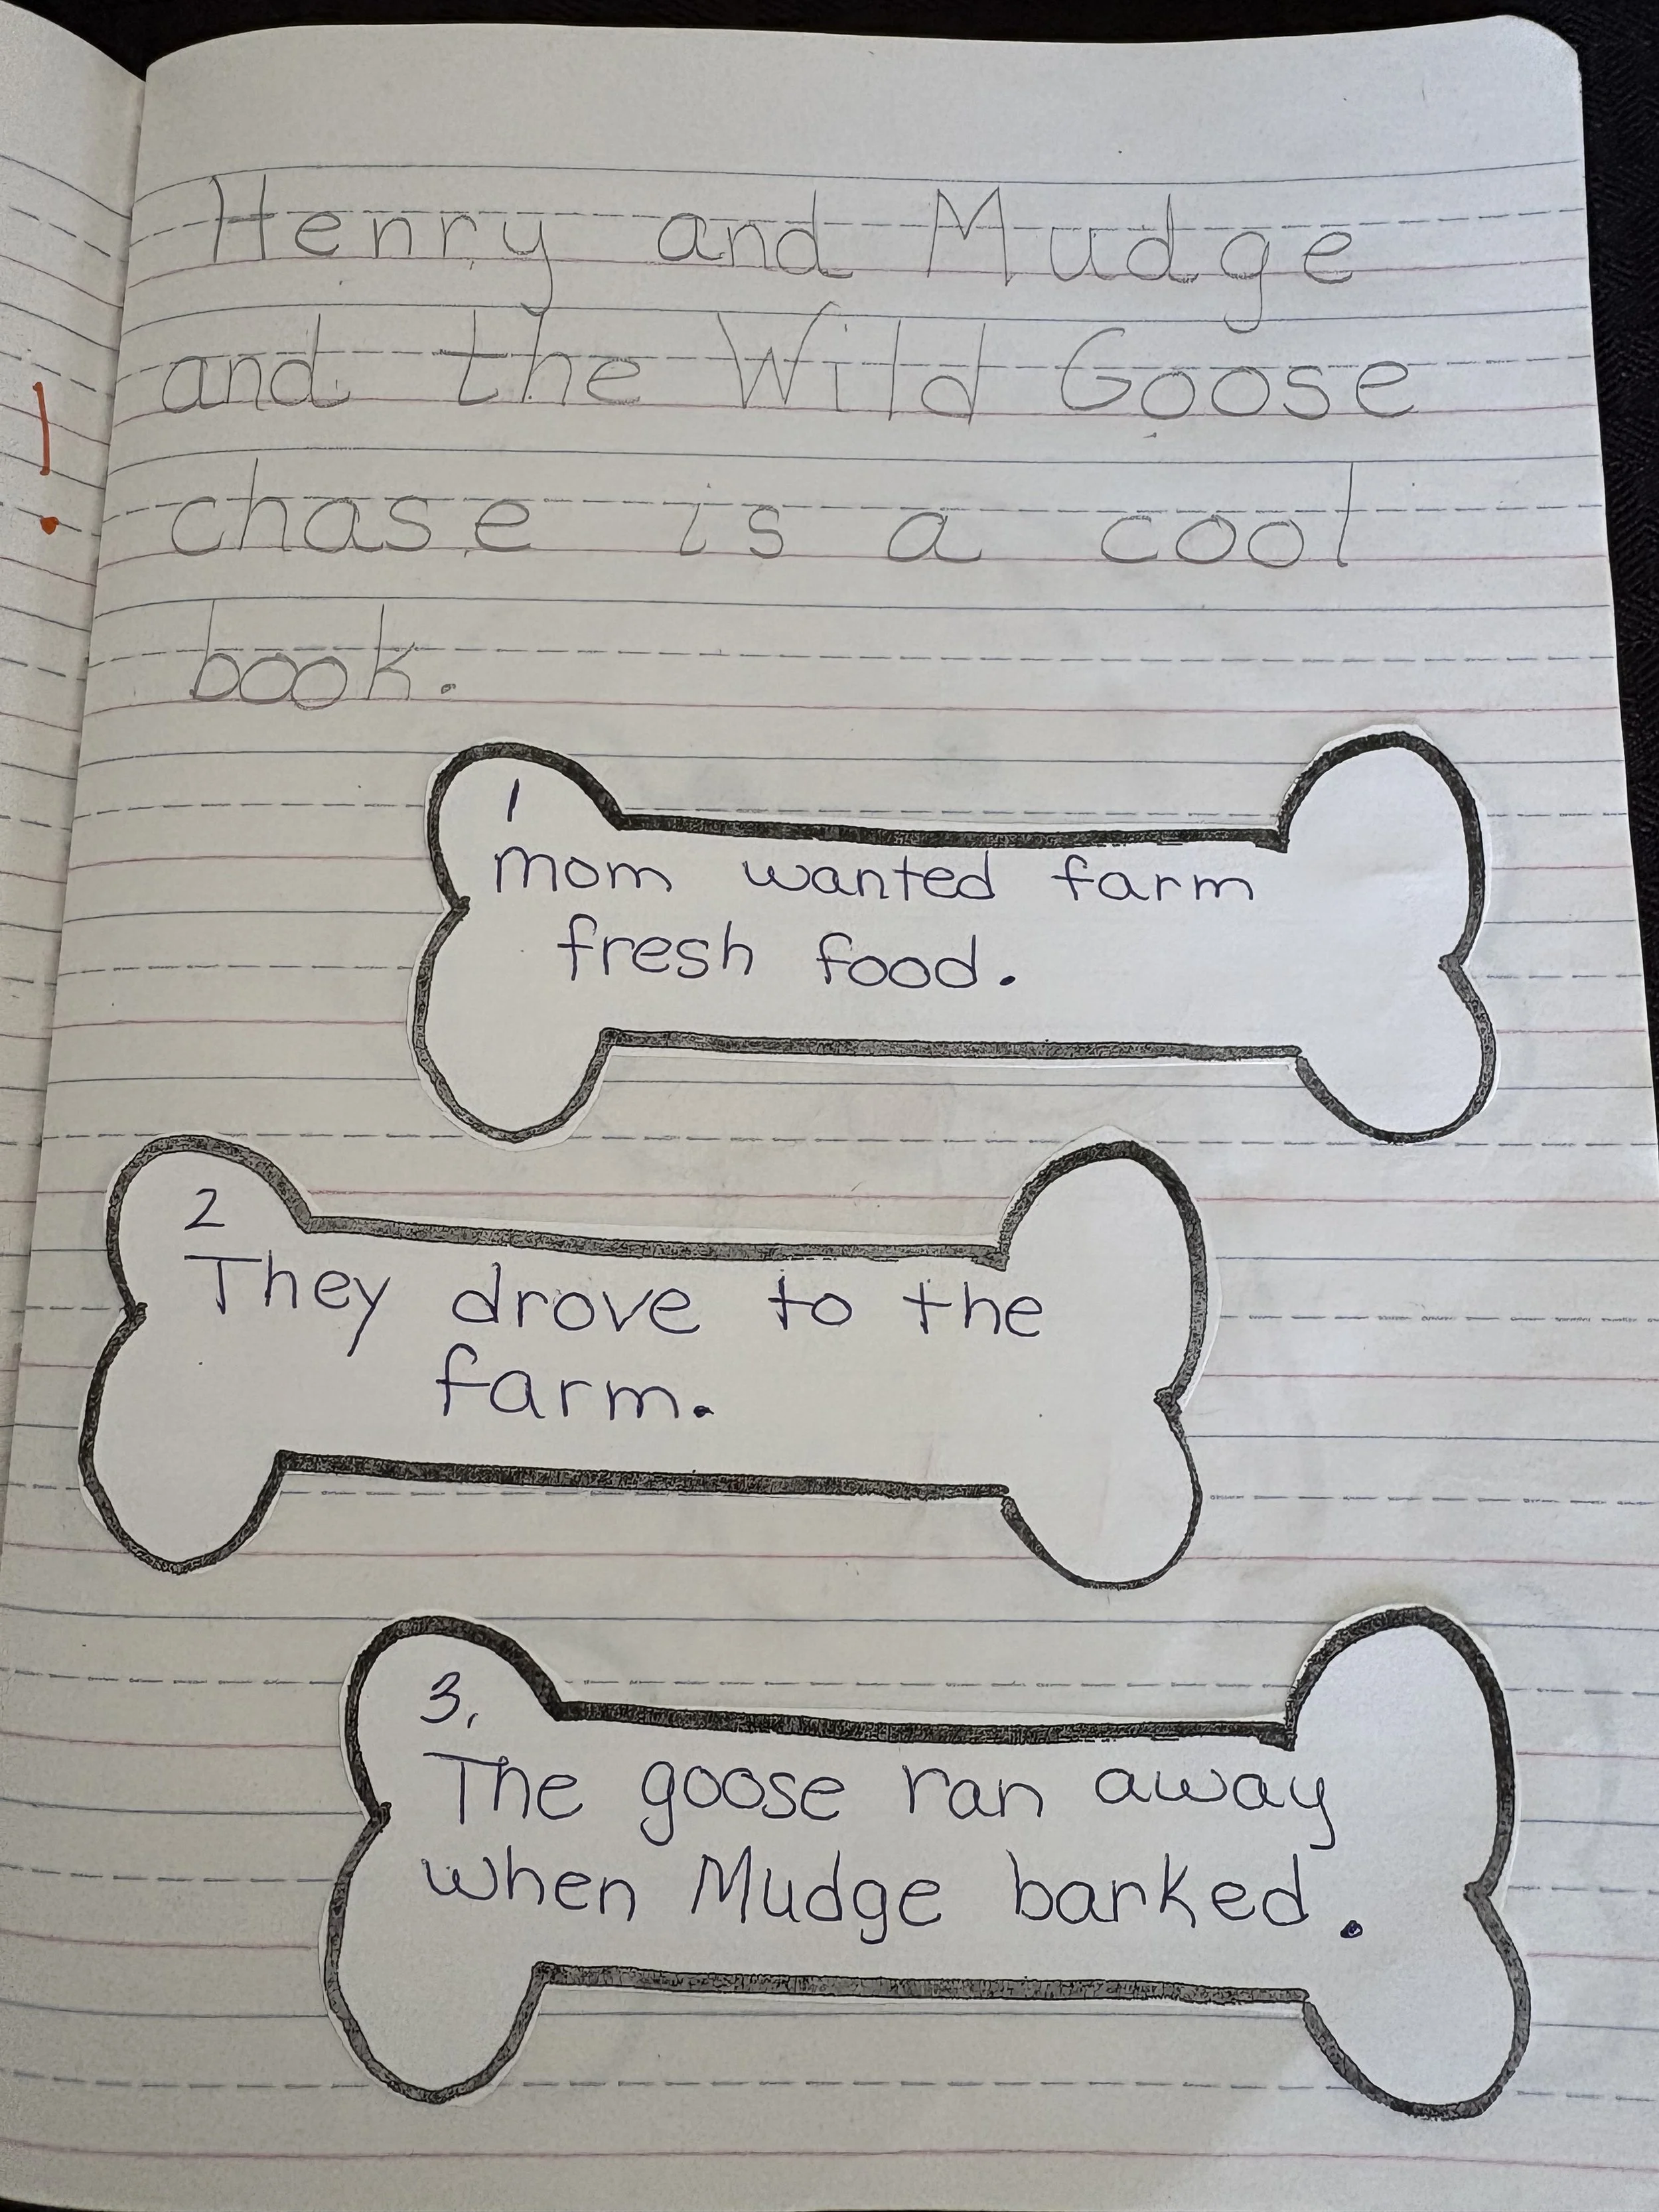 Henry and Mudge
and the Wild Goose
chase is a cool
book.
1
mom wanted farm
fresh food.
2
They drove to the
farm.
3.
The goose ran away
when Mudge barked.
!